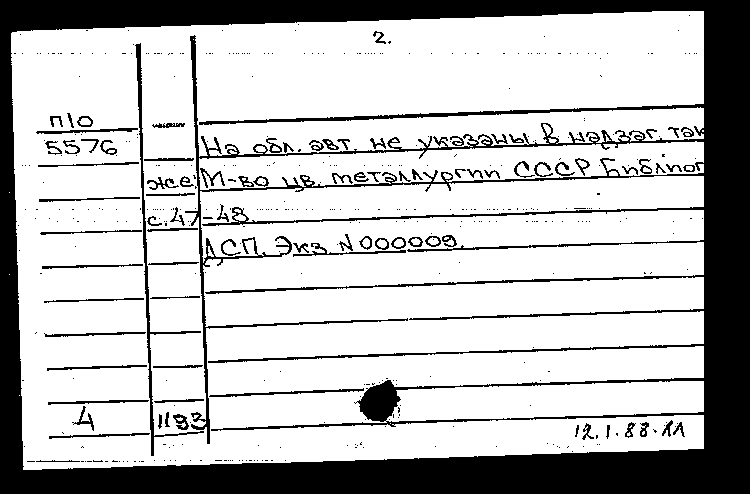 2.
П/О
5576
На обл. авт. не указаны. В надзаг. так
же: М-во цв. металлургии СССР Библиог
с. 47-48.
ДСП. Экз N000009.
4 1193
12.1.88.